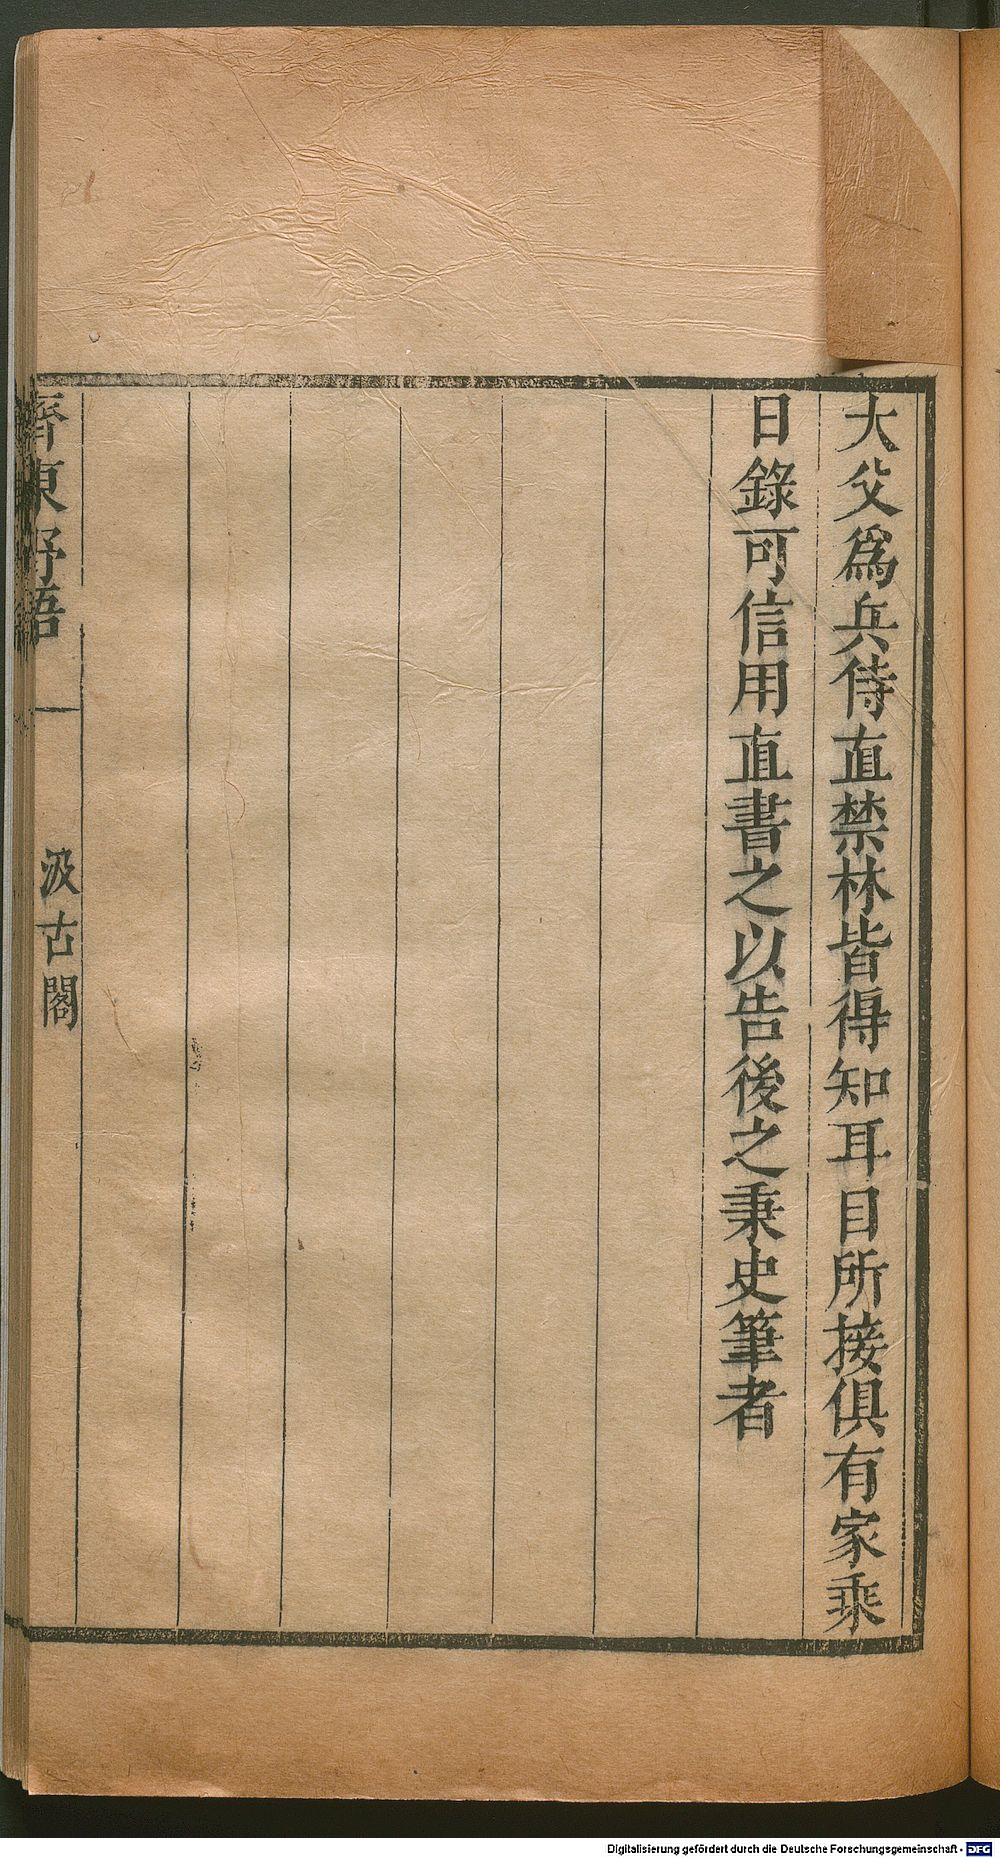 大父爲兵侍直禁林皆得知耳目所接俱有家乘
日錄可信用直書之以告後之秉史筆者
齊東野語 一 汲古閣
Digitalisierung gefördert durch die Deutsche Forschungsgemeinschaft - DFG